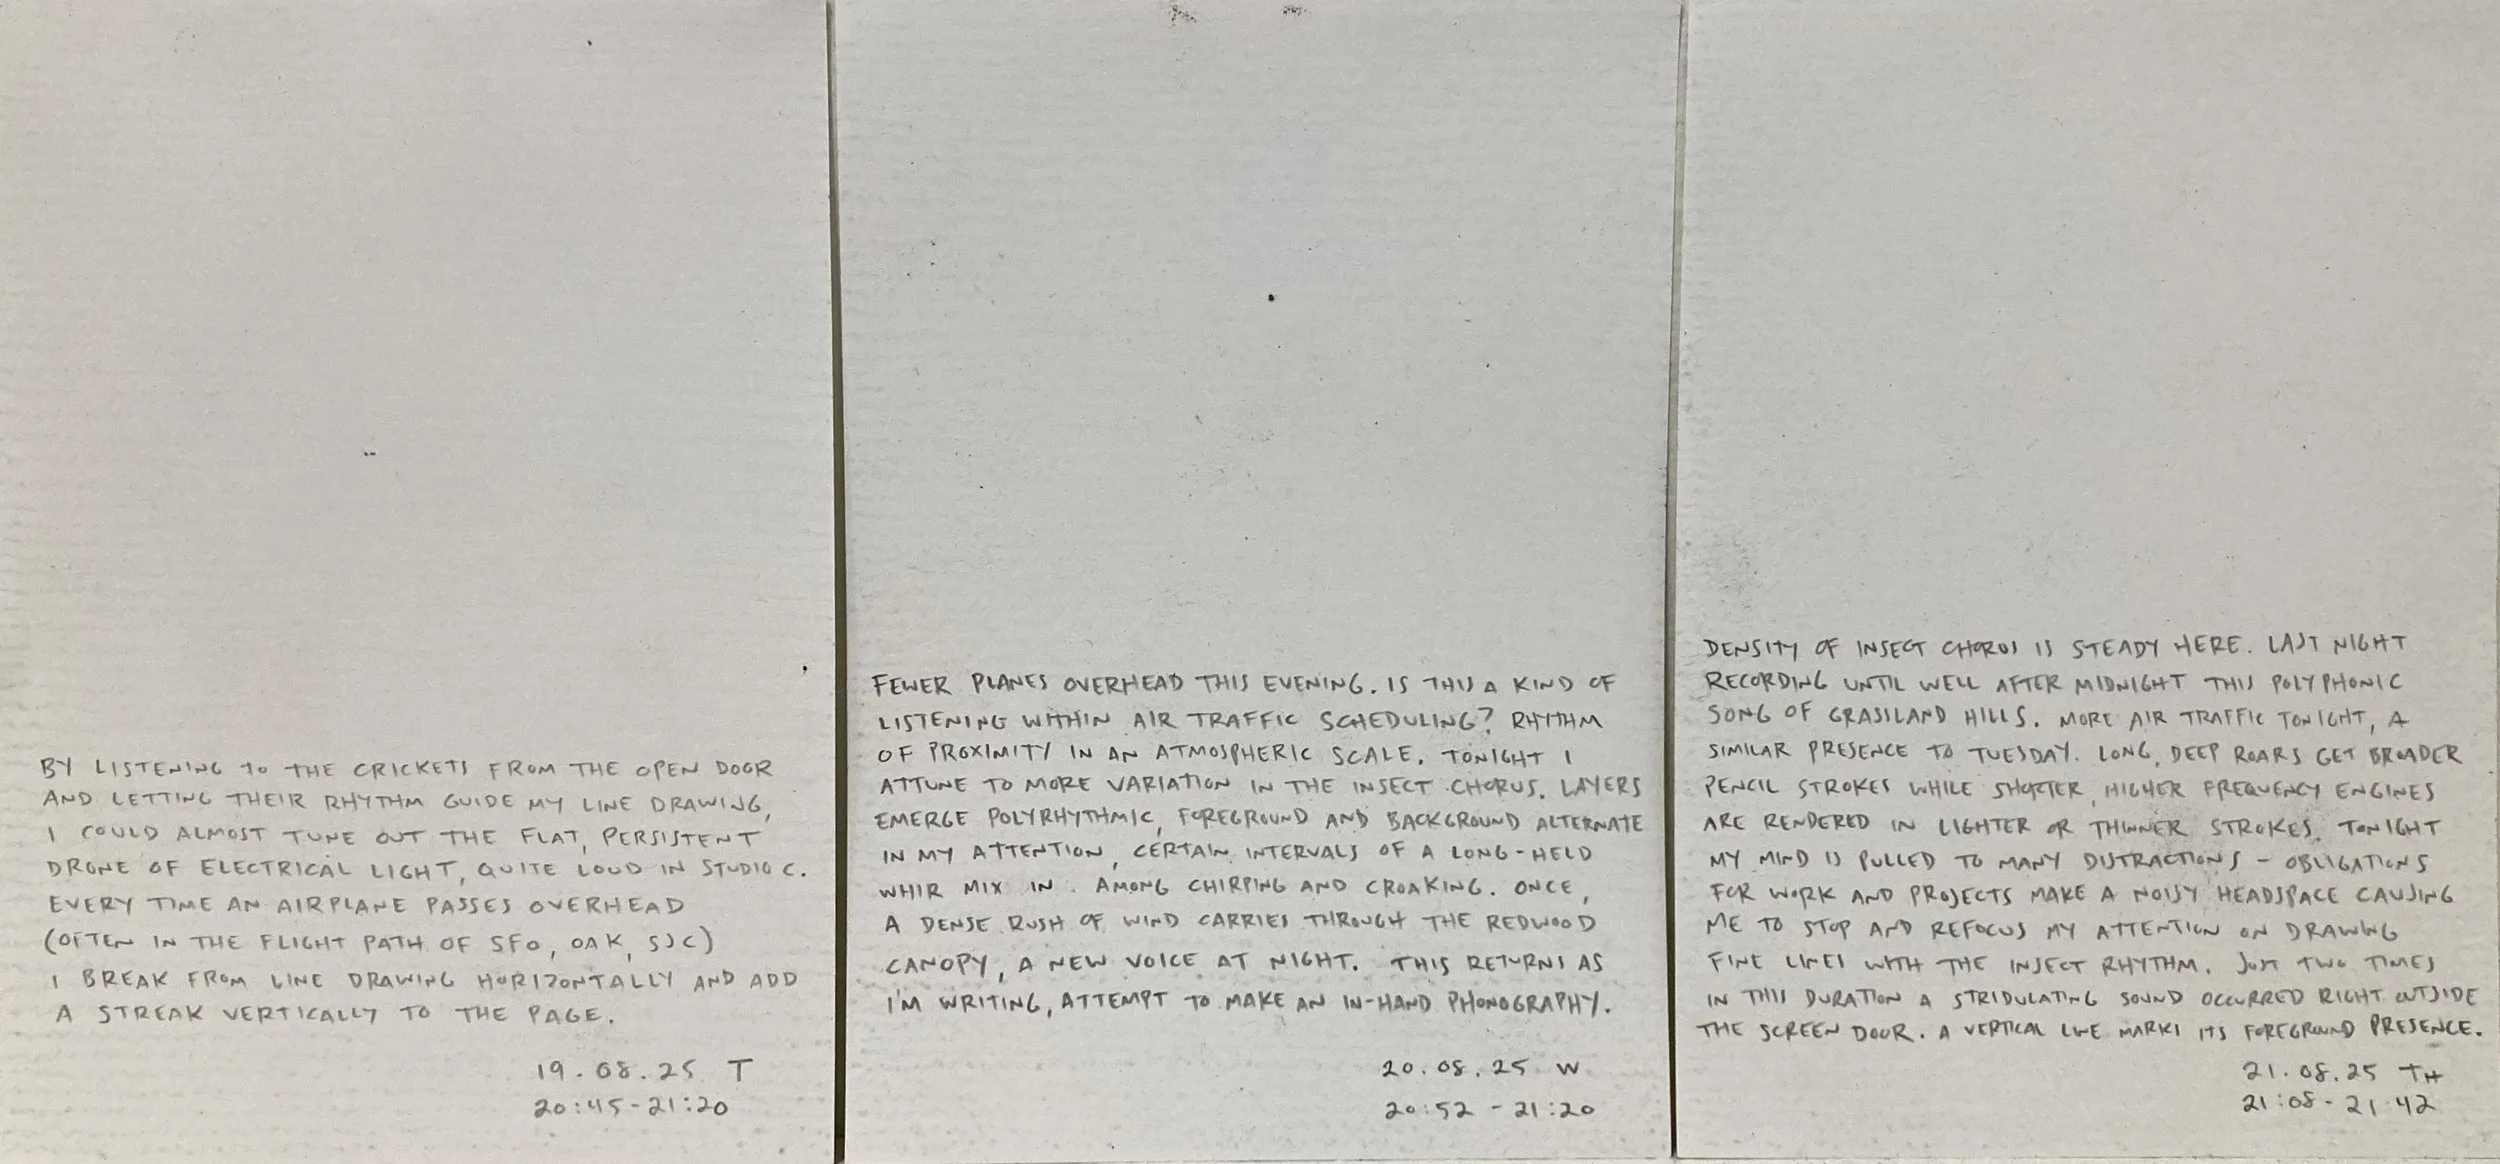 BY LISTENING TO THE CRICKETS FROM THE OPEN DOOR
AND LETTING THEIR RHYTHM GUIDE MY LINE DRAWING,
I COULD ALMOST TUNE OUT THE FLAT, PERSISTENT
DRONE OF ELECTRICAL LIGHT, QUITE LOUD IN STUDIO C.
EVERY TIME AN AIRPLANE PASSES OVERHEAD
(OFTEN IN THE FLIGHT PATH OF SFO, OAK, SJC)
I BREAK FROM LINE DRAWING HORIZONTALLY AND ADD
A STREAK VERTICALLY TO THE PAGE.
19.08.25 T
20:45-21:20
FEWER PLANES OVERHEAD THIS EVENING. IS THIS A KIND OF
LISTENING WITHIN AIR TRAFFIC SCHEDULING? RHYTHM
OF PROXIMITY IN AN ATMOSPHERIC SCALE. TONIGHT I
ATTUNE TO MORE VARIATION IN THE INSECT CHORUS. LAYERS
EMERGE POLYRHYTHMIC, FOREGROUND AND BACKGROUND ALTERNATE
IN MY ATTENTION, CERTAIN INTERVALS OF A LONG-HELD
WHIR MIX IN AMONG CHIRPING AND CROAKING. ONCE,
A DENSE RUSH OF WIND CARRIES THROUGH THE REDWOOD
CANOPY, A NEW VOICE AT NIGHT. THIS RETURNS AS
I'M WRITING, ATTEMPT TO MAKE AN IN-HAND PHONOGRAPHY.
20.08.25 W
20:52 - 21:20
DENSITY OF INSECT CHORUS IS STEADY HERE. LAST NIGHT
RECORDING UNTIL WELL AFTER MIDNIGHT THIS POLYPHONIC
SONG OF GRASSLAND HILLS. MORE AIR TRAFFIC TONIGHT, A
SIMILAR PRESENCE TO TUESDAY. LONG, DEEP ROARS GET BROADER
PENCIL STROKES WHILE SHORTER, HIGHER FREQUENCY ENGINES
ARE RENDERED IN LIGHTER OR THINNER STROKES. TONIGHT
MY MIND IS PULLED TO MANY DISTRACTIONS - OBLIGATIONS
FOR WORK AND PROJECTS MAKE A NOISY HEADSPACE CAUSING
ME TO STOP AND REFOCUS MY ATTENTION ON DRAWING
FINE LINES WITH THE INSECT RHYTHM. JUST TWO TIMES
IN THIS DURATION A STRIDULATING SOUND OCCURRED RIGHT OUTSIDE
THE SCREEN DOOR. A VERTICAL LINE MARKS ITS FOREGROUND PRESENCE.
21.08.25 TH
21:08 - 21:42